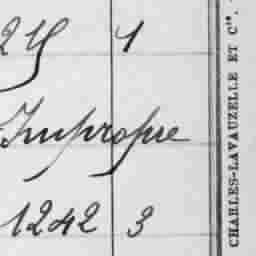 1
Impropre
1242 3
CHARLES-LAVAUZELLE ET Cie.